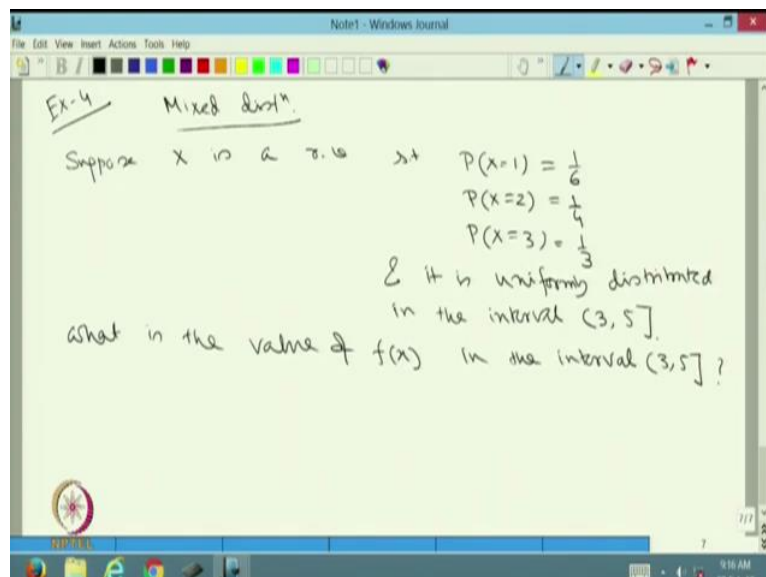 Note1 - Windows Journal
File Edit View Insert Actions Tools Help
B I
Ex-4 Mixed distⁿ.
Suppose X is a r.v st P(X=1) = 1/6
P(X=2) = 1/4
P(X=3) = 1/3
& it is uniformly distributed
in the interval (3, 5].
What is the value of f(x) in the interval (3,5] ?
NPTEL
7/7
7
9:16 AM